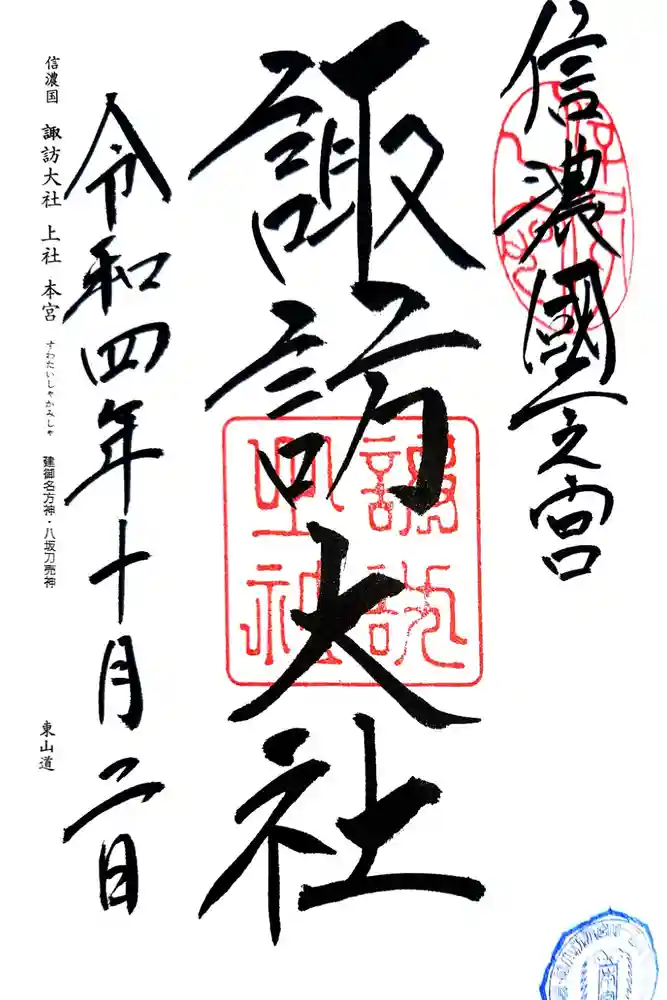 信濃國一之宮
諏訪大社
諏訪
大社
令和四年十月二日
信濃国 諏訪大社 上社 本宮 すわたいしゃかみしゃ 建御名方神・八坂刀売神 東山道